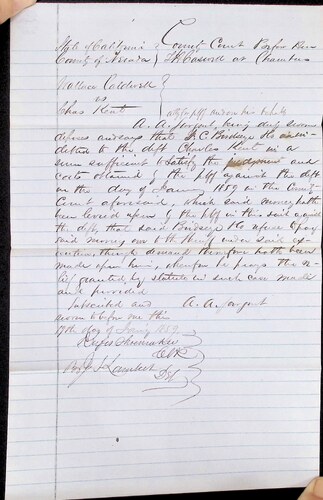 State of California } County Court Before Hon
County of Nevada } T. H. Caswell at Chambers
Wallace Caldwell
vs
Chas Kent atty for plff and on his behalf
A. A. Sargent, being duly sworn
deposes and says that Birdseye &Co is in-
debted to the deft Charles Kent in a
sum sufficient to satisfy the judgment and
costs obtained by the plff against the deft
on the day of Jany 1859 in the County
Court aforesaid, which said money hath
been levied upon by the plff in the said against
the deft, that said Birdseye &Co refuse to pay
said money over to the Sheriff under said ex-
ecution, though demand therefor hath been
made upon him, wherefore he prays the re-
lief granted by statute in such case made
and provided
Subscribed and A. A. Sargent
sworn to before me this
17th day of Jany 1859.
Rufus Shoemaker
Clk
By J. Lambert